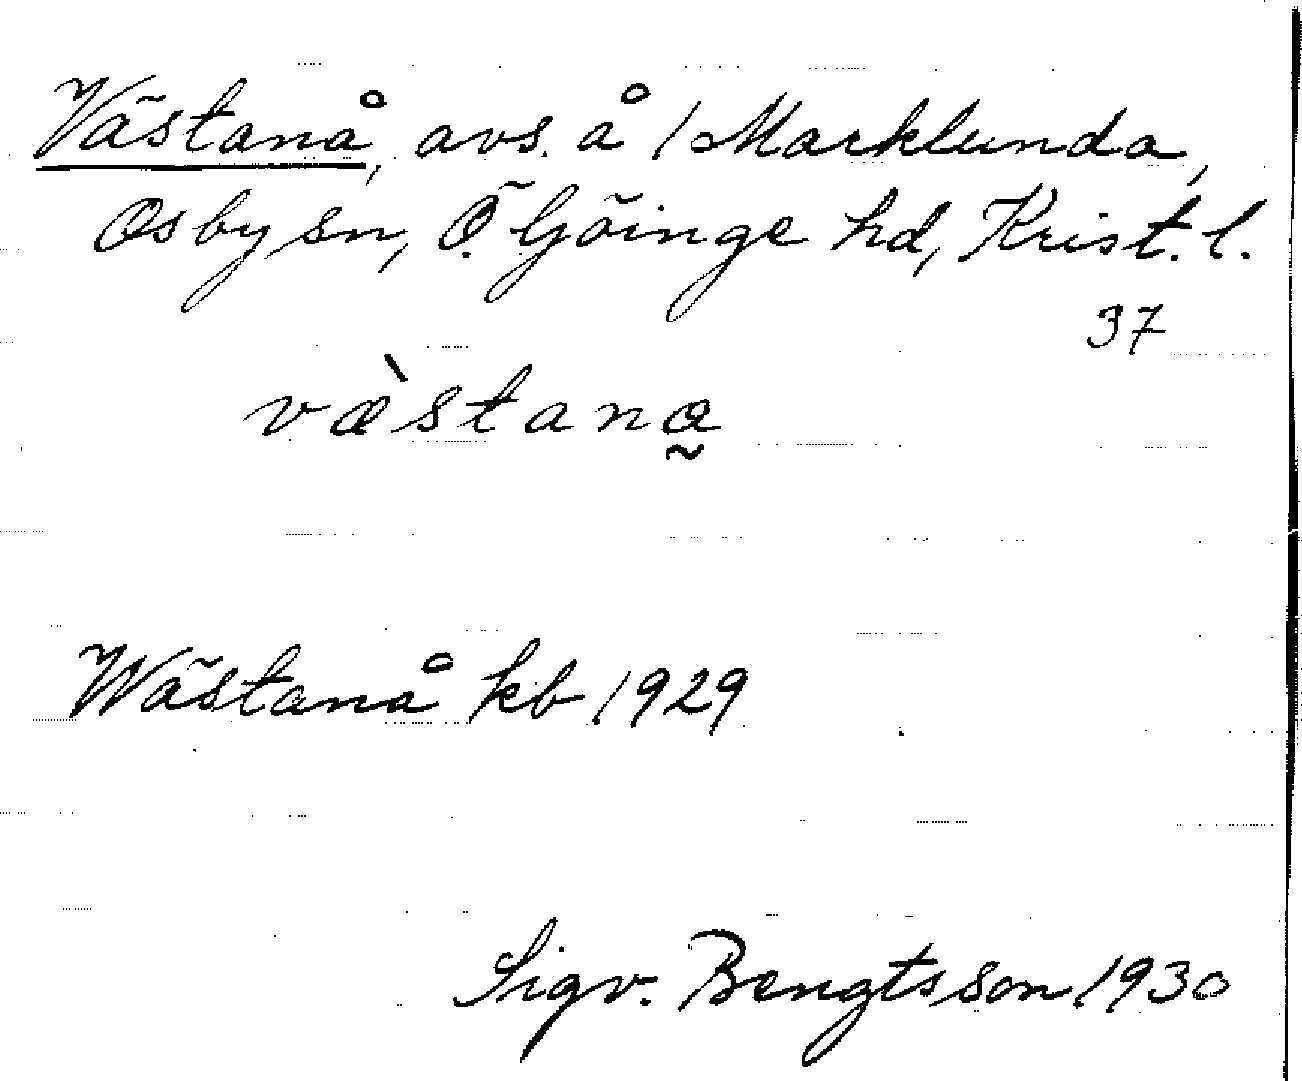 Västanå, avs. å 1 Marklunda,
Osby sn, Ö. Göinge hd, Krist. l.
37
væ̀stana̰
Wästanå kb 1929
Sigv. Bengtsson 1930